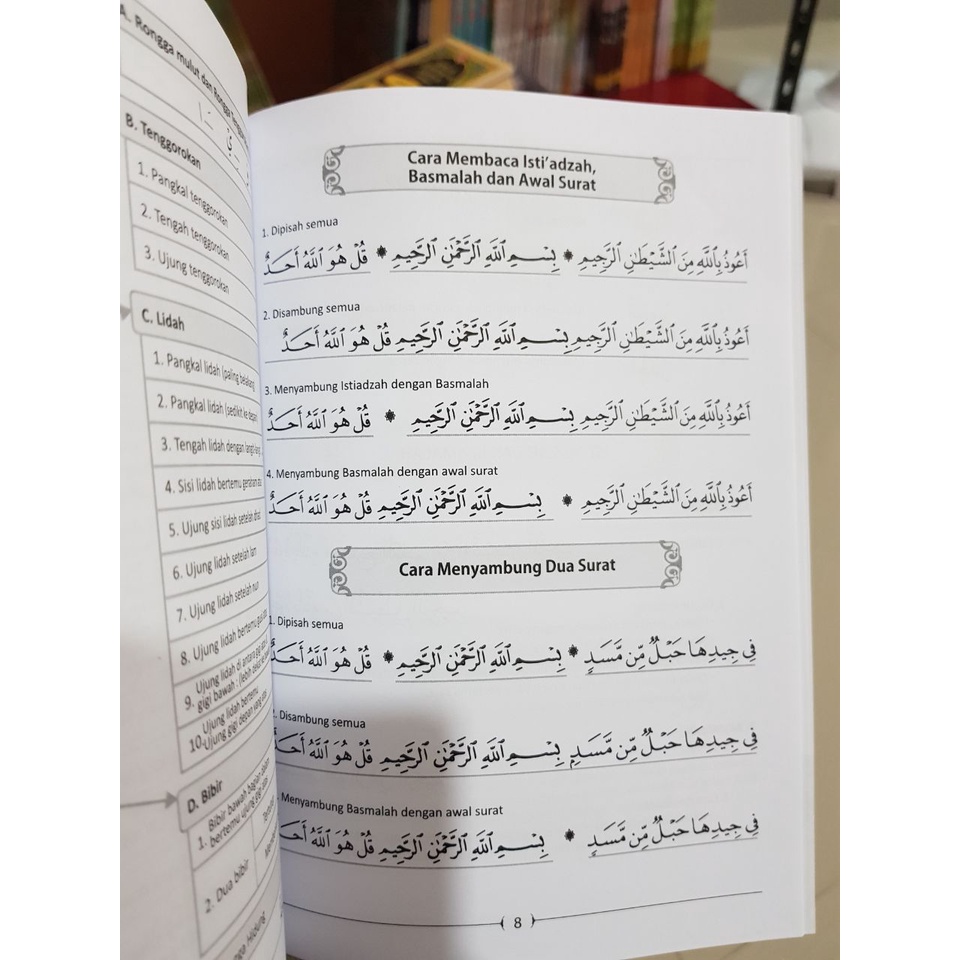 A. Rongga mulut dan Rongga
B. Tenggorokan
1. Pangkal tenggorokan
2. Tengah tenggorokan
3. Ujung tenggorokan
C. Lidah
1. Pangkal lidah (paling belakang
2. Pangkal lidah (sedikit ke depan
3. Tengah lidah dengan langit
4. Sisi lidah bertemu geraham
5. Ujung sisi lidah setelah
6. Ujung lidah setelah lam
7. Ujung lidah setelah nun
8. Ujung lidah bertemu
9. Ujung lidah di antara
gigi bawah (lebih
10. Ujung lidah bertemu
Ujung gigi depan yang
D. Bibir
1. Bibir bawah bagian dalam
bertemu ujung gigi
2. Dua bibir
Hidung
Cara Membaca Isti'adzah,
Basmalah dan Awal Surat
1. Dipisah semua
أَعُوذُ بِاللَّهِ مِنَ الشَّيْطَانِ الرَّجِيمِ * بِسْمِ اللَّهِ الرَّحْمَٰنِ الرَّحِيمِ * قُلْ هُوَ اللَّهُ أَحَدٌ
2. Disambung semua
أَعُوذُ بِاللَّهِ مِنَ الشَّيْطَانِ الرَّجِيمِ بِسْمِ اللَّهِ الرَّحْمَٰنِ الرَّحِيمِ قُلْ هُوَ اللَّهُ أَحَدٌ
3. Menyambung Istiadzah dengan Basmalah
أَعُوذُ بِاللَّهِ مِنَ الشَّيْطَانِ الرَّجِيمِ بِسْمِ اللَّهِ الرَّحْمَٰنِ الرَّحِيمِ * قُلْ هُوَ اللَّهُ أَحَدٌ
4. Menyambung Basmalah dengan awal surat
أَعُوذُ بِاللَّهِ مِنَ الشَّيْطَانِ الرَّجِيمِ * بِسْمِ اللَّهِ الرَّحْمَٰنِ الرَّحِيمِ قُلْ هُوَ اللَّهُ أَحَدٌ
Cara Menyambung Dua Surat
1. Dipisah semua
فِي جِيدِهَا حَبْلٌ مِّن مَّسَدٍ * بِسْمِ اللَّهِ الرَّحْمَٰنِ الرَّحِيمِ * قُلْ هُوَ اللَّهُ أَحَدٌ
2. Disambung semua
فِي جِيدِهَا حَبْلٌ مِّن مَّسَدٍ بِسْمِ اللَّهِ الرَّحْمَٰنِ الرَّحِيمِ قُلْ هُوَ اللَّهُ أَحَدٌ
Menyambung Basmalah dengan awal surat
فِي جِيدِهَا حَبْلٌ مِّن مَّسَدٍ * بِسْمِ اللَّهِ الرَّحْمَٰنِ الرَّحِيمِ قُلْ هُوَ اللَّهُ أَحَدٌ
8